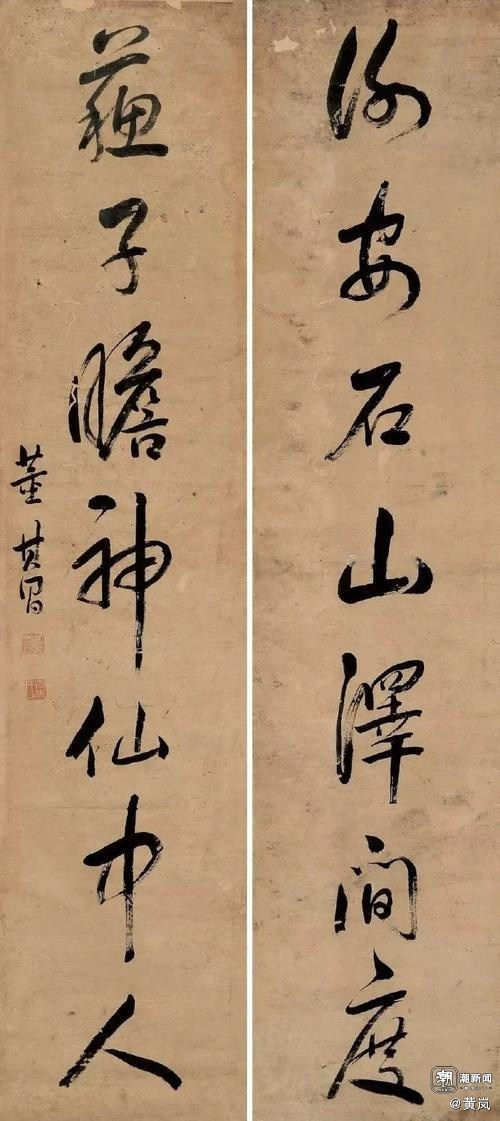 谢安石山澤间度
蘓子瞻神仙中人
董其昌
潮
潮新闻
@黄岚